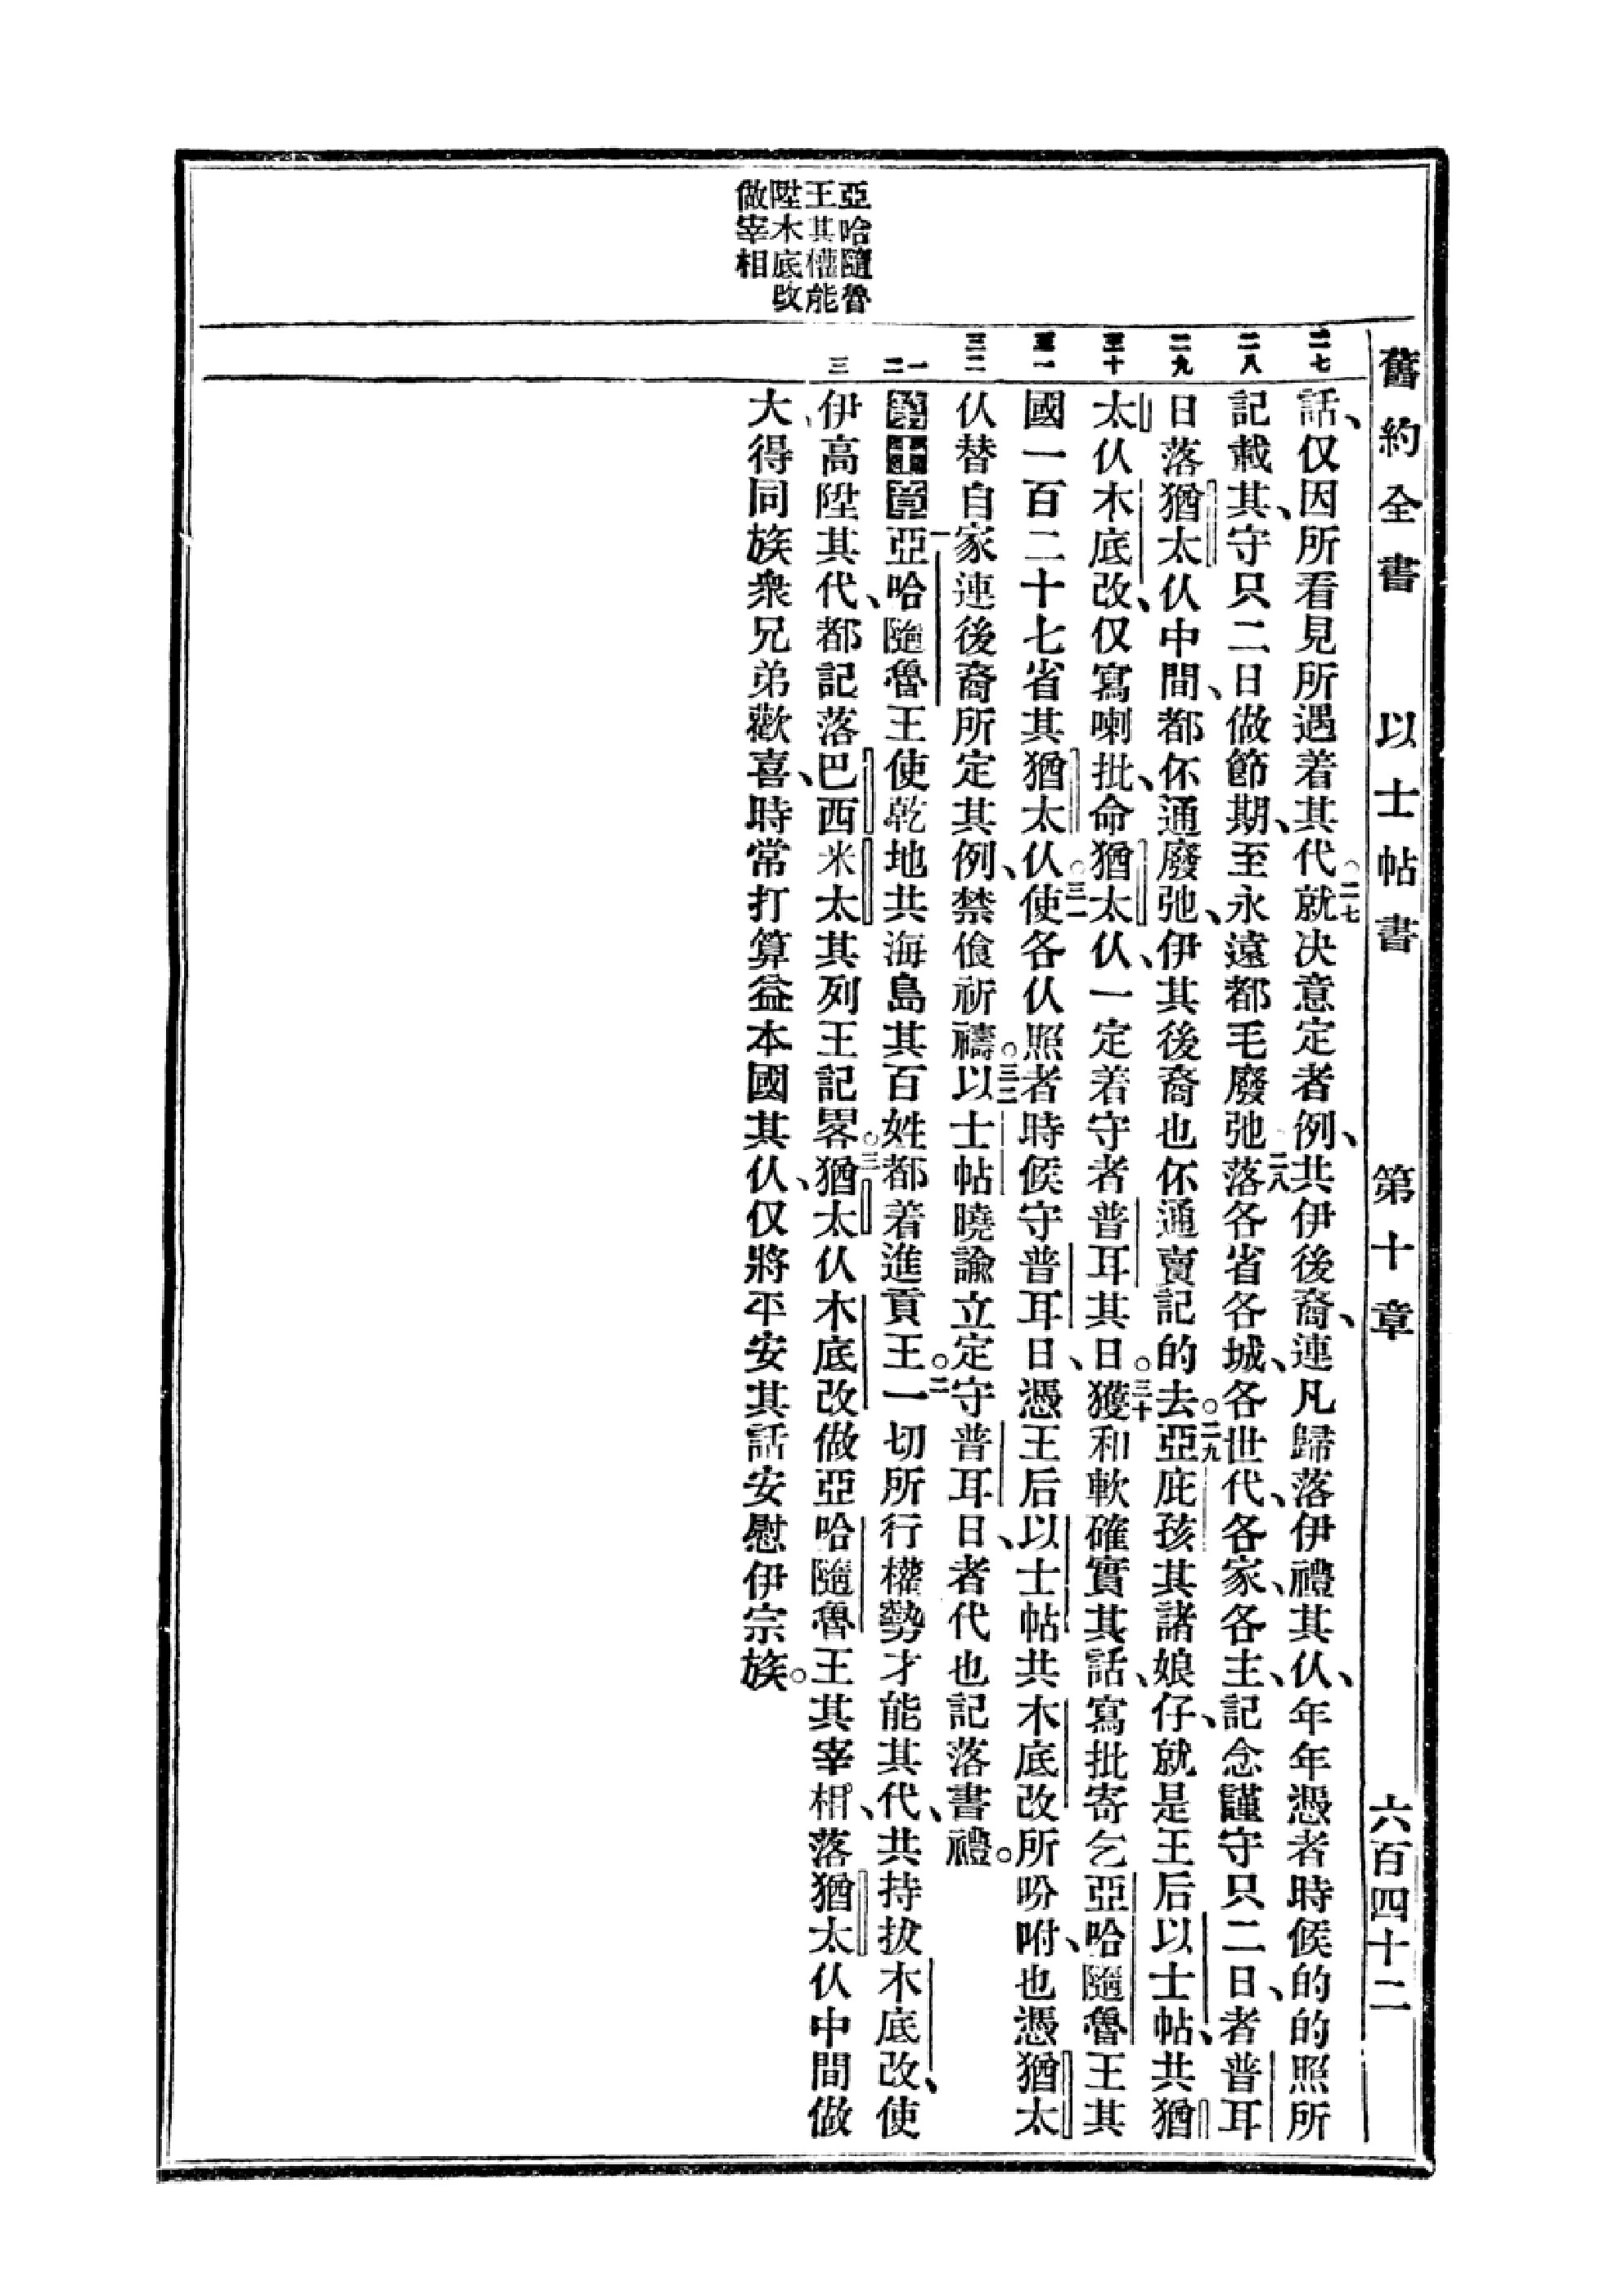 舊約全書 以士帖書 第十章 六百四十二
亞哈隨魯
王其權能
陞木底改
做宰相
二七 二八 二九 三十 三一 三二 一 二 三
話、仅因所看見所遇着其代。二七就决意定者例、共伊後裔、連凡歸落伊禮其仈、年年憑者時候的的照所
記載其、守只二日做節期、至永遠都毛廢弛二八落各省各城、各世代、各家、各主、記念謹守只二日、者普耳
日落猶太仈中間、都伓通廢弛、伊其後裔也伓通賣記的去。二九亞庇孩其諸娘仔、就是王后以士帖、共猶
太仈木底改、仅寫喇批、命猶太仈、一定着守者普耳其日。三十獲和軟確實其話、寫批寄乞亞哈隨魯王其
國一百二十七省其猶太仈。三一使各仈照者時候守普耳日、憑王后以士帖共木底改所吩咐、也憑猶太
仈替自家連後裔所定其例、禁飡祈禱。三二以士帖曉諭立定守普耳日、者代也記落書禮。
第十章一亞哈隨魯王使乾地共海島其百姓都着進貢。二王一切所行權勢才能其代、共持拔木底改、使
伊高陞其代、都記落巴西米太其列王記畧。三猶太仈木底改做亞哈隨魯王其宰相、落猶太仈中間做
大、得同族衆兄弟歡喜、時常打算益本國其仈、仅將平安其話安慰伊宗族。